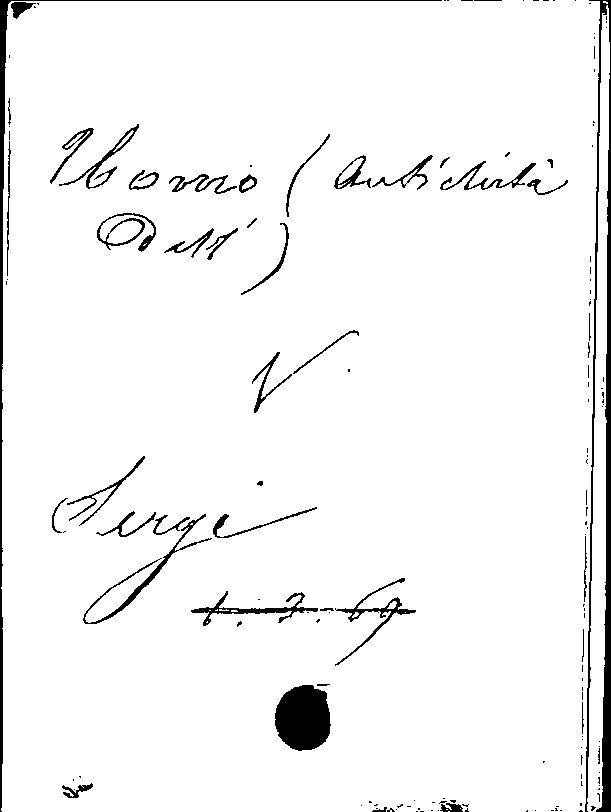 Uomo (Antichità
Dell')
V.
Sergi